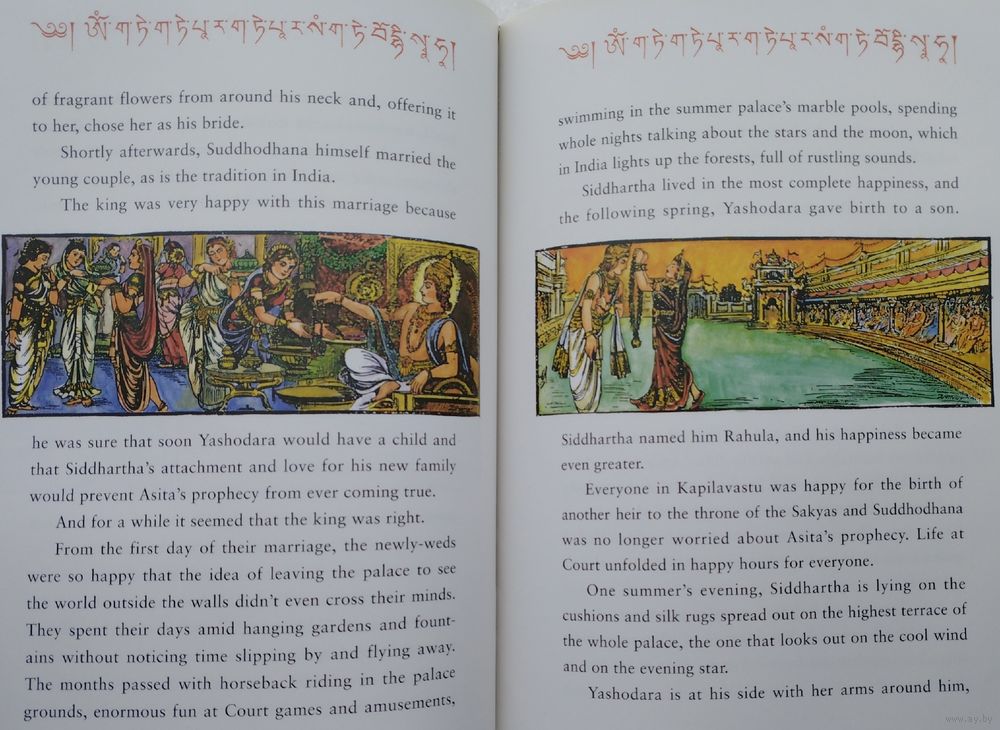 ༄༅། ཨོཾ་ག་ཏེ་ག་ཏེ་པཱ་ར་ག་ཏེ་པཱ་ར་སཾ་ག་ཏེ་བོ་དྷི་སྭཱ་ཧཱ།
of fragrant flowers from around his neck and, offering it
to her, chose her as his bride.
Shortly afterwards, Suddhodhana himself married the
young couple, as is the tradition in India.
The king was very happy with this marriage because
he was sure that soon Yashodara would have a child and
that Siddhartha's attachment and love for his new family
would prevent Asita's prophecy from ever coming true.
And for a while it seemed that the king was right.
From the first day of their marriage, the newly-weds
were so happy that the idea of leaving the palace to see
the world outside the walls didn't even cross their minds.
They spent their days amid hanging gardens and fount-
ains without noticing time slipping by and flying away.
The months passed with horseback riding in the palace
grounds, enormous fun at Court games and amusements,
༄༅། ཨོཾ་ག་ཏེ་ག་ཏེ་པཱ་ར་ག་ཏེ་པཱ་ར་སཾ་ག་ཏེ་བོ་དྷི་སྭཱ་ཧཱ།
swimming in the summer palace's marble pools, spending
whole nights talking about the stars and the moon, which
in India lights up the forests, full of rustling sounds.
Siddhartha lived in the most complete happiness, and
the following spring, Yashodara gave birth to a son.
Siddhartha named him Rahula, and his happiness became
even greater.
Everyone in Kapilavastu was happy for the birth of
another heir to the throne of the Sakyas and Suddhodhana
was no longer worried about Asita's prophecy. Life at
Court unfolded in happy hours for everyone.
One summer's evening, Siddhartha is lying on the
cushions and silk rugs spread out on the highest terrace of
the whole palace, the one that looks out on the cool wind
and on the evening star.
Yashodara is at his side with her arms around him,
www.ay.by